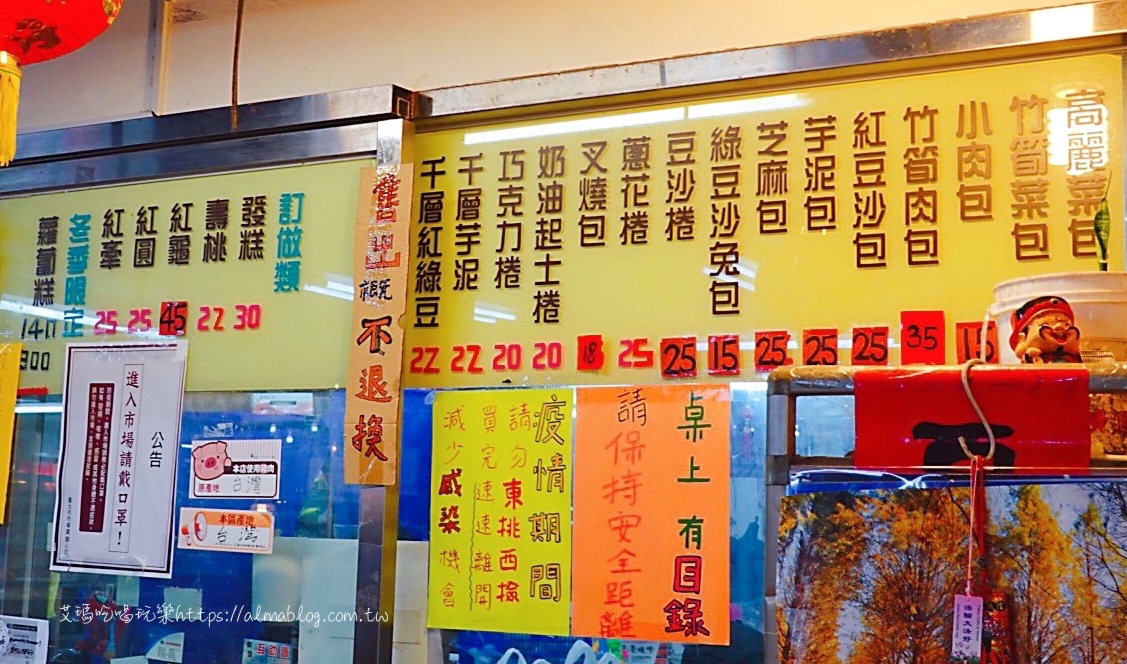 高麗菜包
竹筍菜包
小肉包 15
竹筍肉包 35
紅豆沙包 25
芋泥包 25
芝麻包 25
綠豆沙兔包 15
豆沙捲 25
蔥花捲 25
叉燒包 18
奶油起士捲 20
巧克力捲 20
千層芋泥 22
千層紅綠豆 22
訂做類
發糕 30
壽桃 22
紅龜 45
紅圓 25
紅牽 25
冬季限定
蘿蔔糕
300
售出
概不退換
公告
進入市場請戴口罩!
本店使用豬肉
原產地
台灣
本區產地
台灣
疫情期間
請勿東挑西撿
買完速速離開
減少感染機會
桌上有目錄
請保持安全距離
法輪大法好
互助
艾瑪吃喝玩樂https://almablog.com.tw